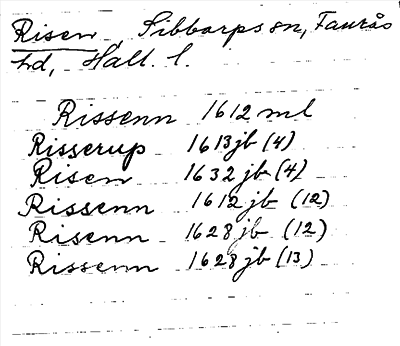 Risen, Sibbarps sn, Faurås
hd, Hall. l.
Rissenn 1612 ml
Risserup 1613 jb (4)
Risen 1632 jb (4)
Rissenn 1612 jb (12)
Risenn 1628 jb (12)
Rissenn 1628 jb (13)